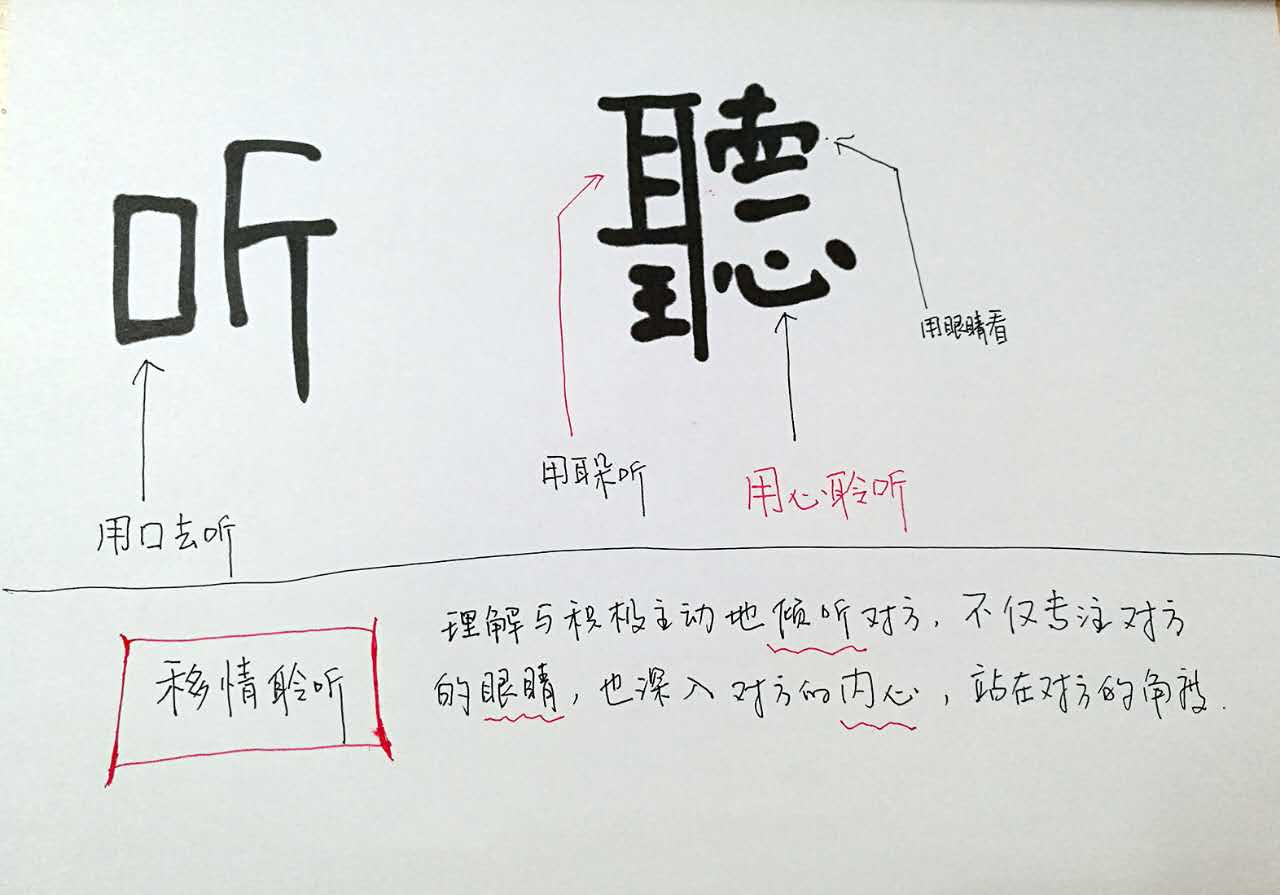 听
聽
用眼睛看
用耳朵听
用心聆听
用口去听
移情聆听
理解与积极主动地倾听对方，不仅专注对方
的眼睛，也深入对方的内心，站在对方的角度.